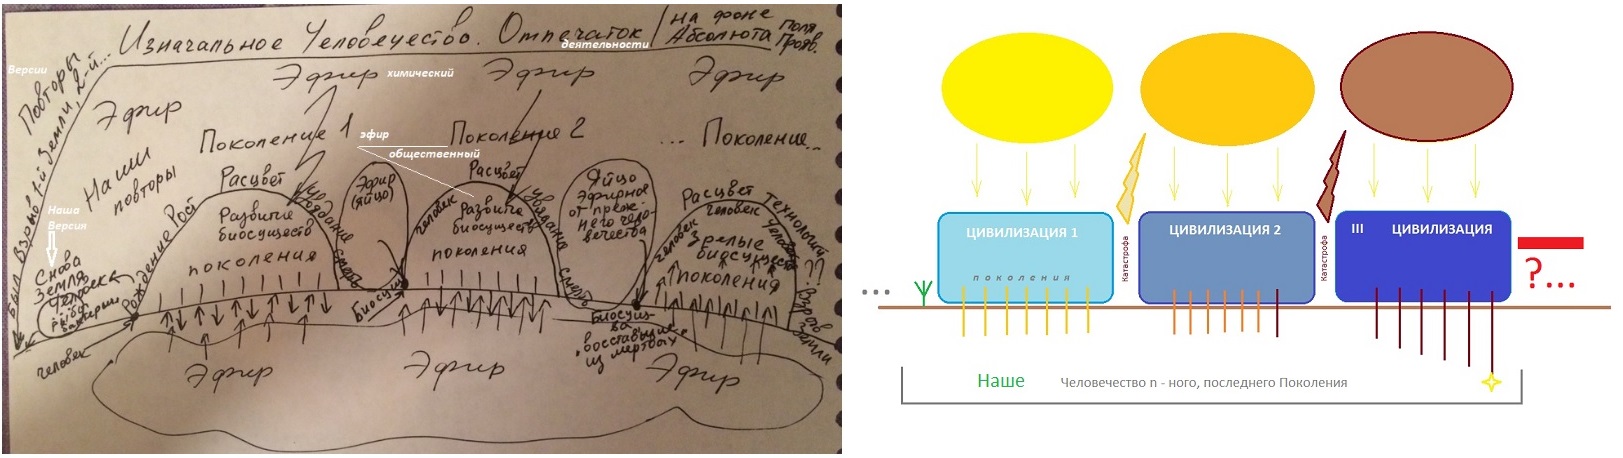 Изначальное Человечество. Отпечаток
деятельности
на фоне
Абсолюта
Поля
Прояв.
Версии
Повторы
Земли, 2-й...
Был взрыв 1-й
Эфир
Эфир
химический
Эфир
Эфир
Наши
повторы
Поколение 1
эфир
общественный
Поколение 2
... Поколение..
Наша
Версия
Снова
Земля
Человек
рыба
человек
Рождение
Рост
Расцвет
Развитие
биосуществ
поколения
Увядание
смерть
Эфир
(яйцо)
Биосущ
человек
Расцвет
Развитие
биосуществ
поколения
Увядание
смерть
Яйцо
эфирное
от преж-
него чело-
вечества
Биосущ-
ва
восставшие
из мертвых
человек
Расцвет
человек
зрелые
биосущества
поколения
Технологий
??
Взрыв
Земли
Эфир
Эфир
Эфир
ЦИВИЛИЗАЦИЯ 1
поколения
Катастрофа
ЦИВИЛИЗАЦИЯ 2
Катастрофа
III ЦИВИЛИЗАЦИЯ
?...
...
Наше Человечество n - ного, последнего Поколения